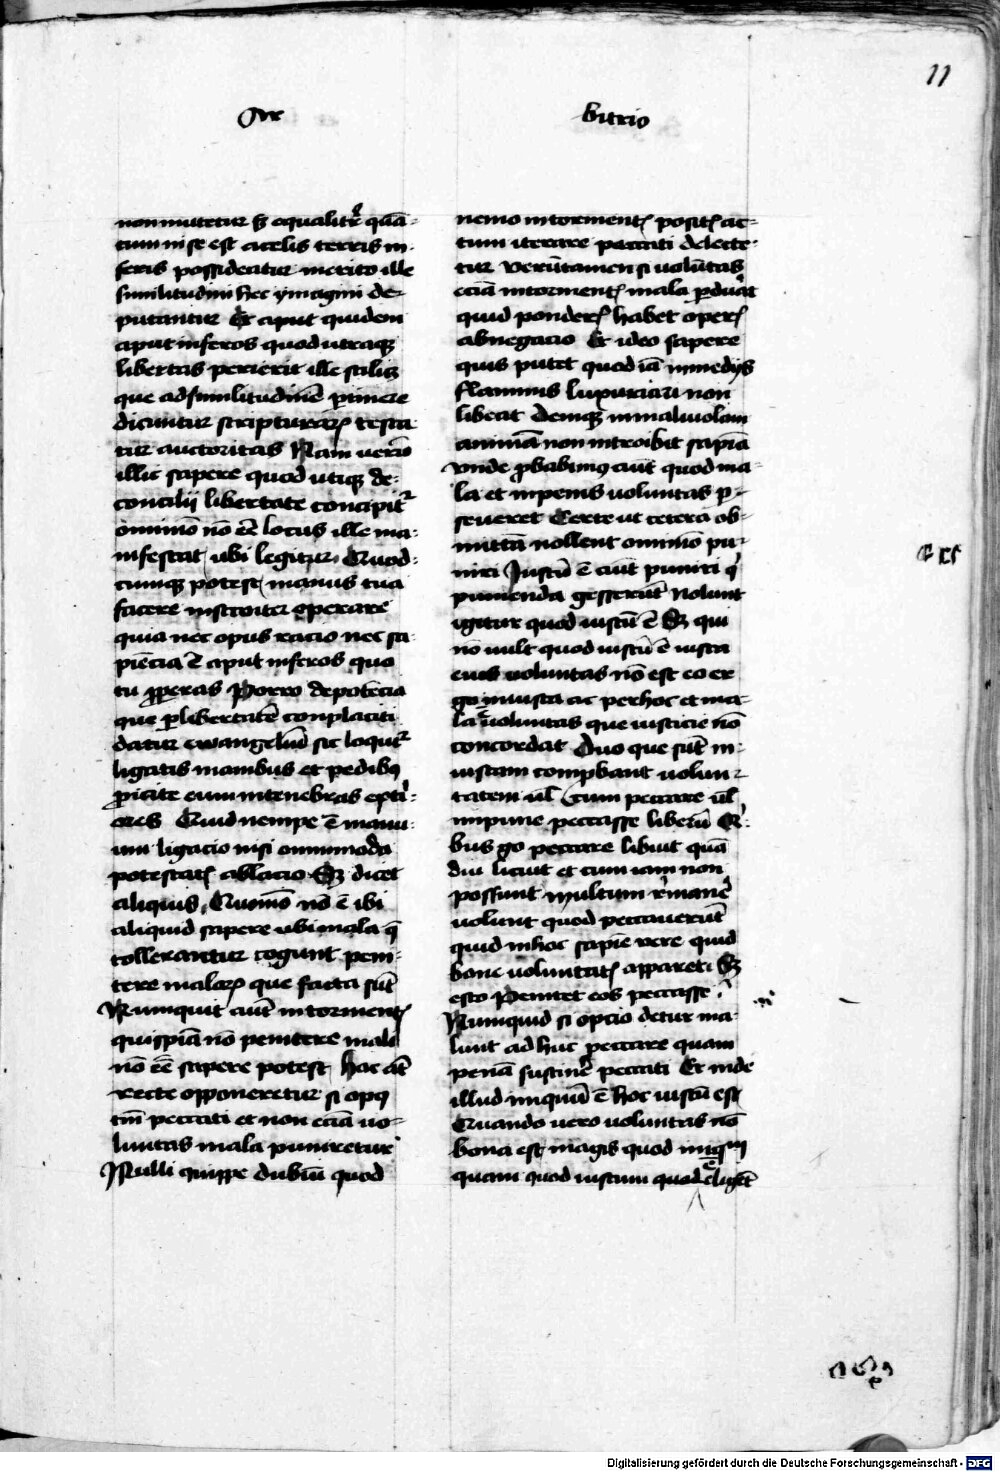 11
Ar
bitrio
non mutetur sꝫ equalitͬ quā-
tum in se est et celis terris in-
feris possideatur merito ille
similitudini hec ymagini de-
putantur Et aput quidem
aput inferos quod utraqꝫ
libertas perierit ille scilicꝫ
que ad similitudinē ꝑtinere
dicuntur scripturaꝝ testa
tur auctoritas Nam verū
illic sapere quod utiqꝫ de-
concilij libertate concipitͬ
omnimō nō eē locus ille ma-
nifestat ubi legitur Quod-
cumqꝫ potest manus tua
facere instanter operare
quia nec opus racio nec sa-
piēcia ē aput inferos quo
tu ꝓperas Porro de potēcia
que ꝑ libertatē conplaciti
datur ewangeliū sic loquitͬ
ligatis manibus et pedibꝫ
ꝓicite eum in tenebras exti-
ores Quid nempe ē manu-
um ligacio nisi omnimoda
potestatꝭ ablacio Sꝫ dicet
aliquis Quomō nō ē ibi
aliquid sapere ubi mala q̄
tollerantur cogunt peni-
tere maloꝝ que facta sūt
Numquit autē in tormentꝭ
quispiā nō penitere male
nō eē sapere potest hac at̄
recte opponeretur si opꝰ
tm̄ peccati et non eciā vo-
luntas mala puniretur
Nulli quippe dubiū quod
nemo in tormentꝭ positꝭ ac-
tum iterare peccati delecte-
tur verūtamen si volūtas
eciā in tormentꝭ mala ꝑdurat
quid ponderꝭ habet operꝭ
abnegacio Et ideo sapere
quis putet quod iā in medijs
flammis luxuriari non
libeat Deniqꝫ in malivolam
animā non introibit sapiā
vnde ꝓbabimꝰ autē quod ma-
la et in penis voluntas ꝑ-
severet Certe ut cetera ob-
mittā nollent omnimō pu-
niri Justū ē autē puniri q̄
punienda gesserūt Nolunt
igitur quod iustū ē Sꝫ qui
nō vult quod iustū ē iusta
eius voluntas nō est eo er
go iniusta ac per hoc et ma-
la ē voluntas que iusticie nō
concordat Duo que sūt in-
iustam comprobant volun-
tatem vl̄ cum peccare vl̄
inpune peccasse liberū Qͥ-
bus go peccare libuit quā
diu licuit et cum iam non
possunt multum rͤmanēͬ
volunt quod peccauerūt
quid in hoc sapiē vere quid
bone voluntatꝭ apparet Sꝫ
esto Penitet eos peccasse
Numquid si optio detur ma-
lunt ad huc peccare quam
penā sustinēͬ peccati Et inde
illud iniquū ē hoc iustū est
Quando vero voluntas nō
bona est magis quod iniqm̄
quam quod iustum quod ē eliget